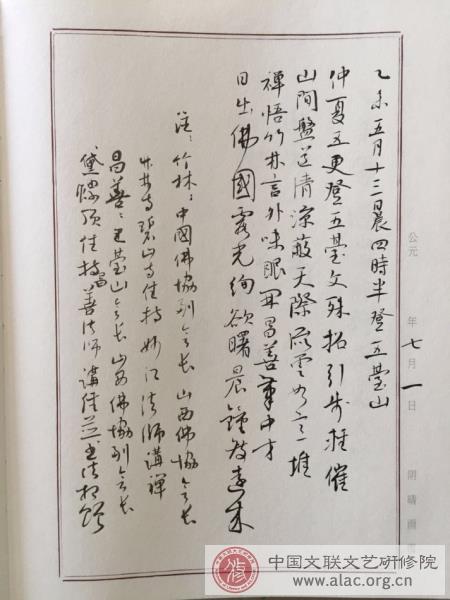 公元 年 七 月 一 日 阴 晴 雨
乙未五月十三晨四時半登五臺山
仲夏五更登五臺文殊招引步催
山間盤道清涼蔽天際雲堆
禪悟竹林言外味眼昌善事中才
日出佛國霞光絢欲曙晨鐘鼓遠來
注：竹林：中國佛協副会长山西佛協会长
竹林寺碧山寺住持妙江法師講禪
昌善：五臺山会长山西佛協副会长
黛螺顶住持昌善法师講
中国文联文艺研修院
www.alac.org.cn